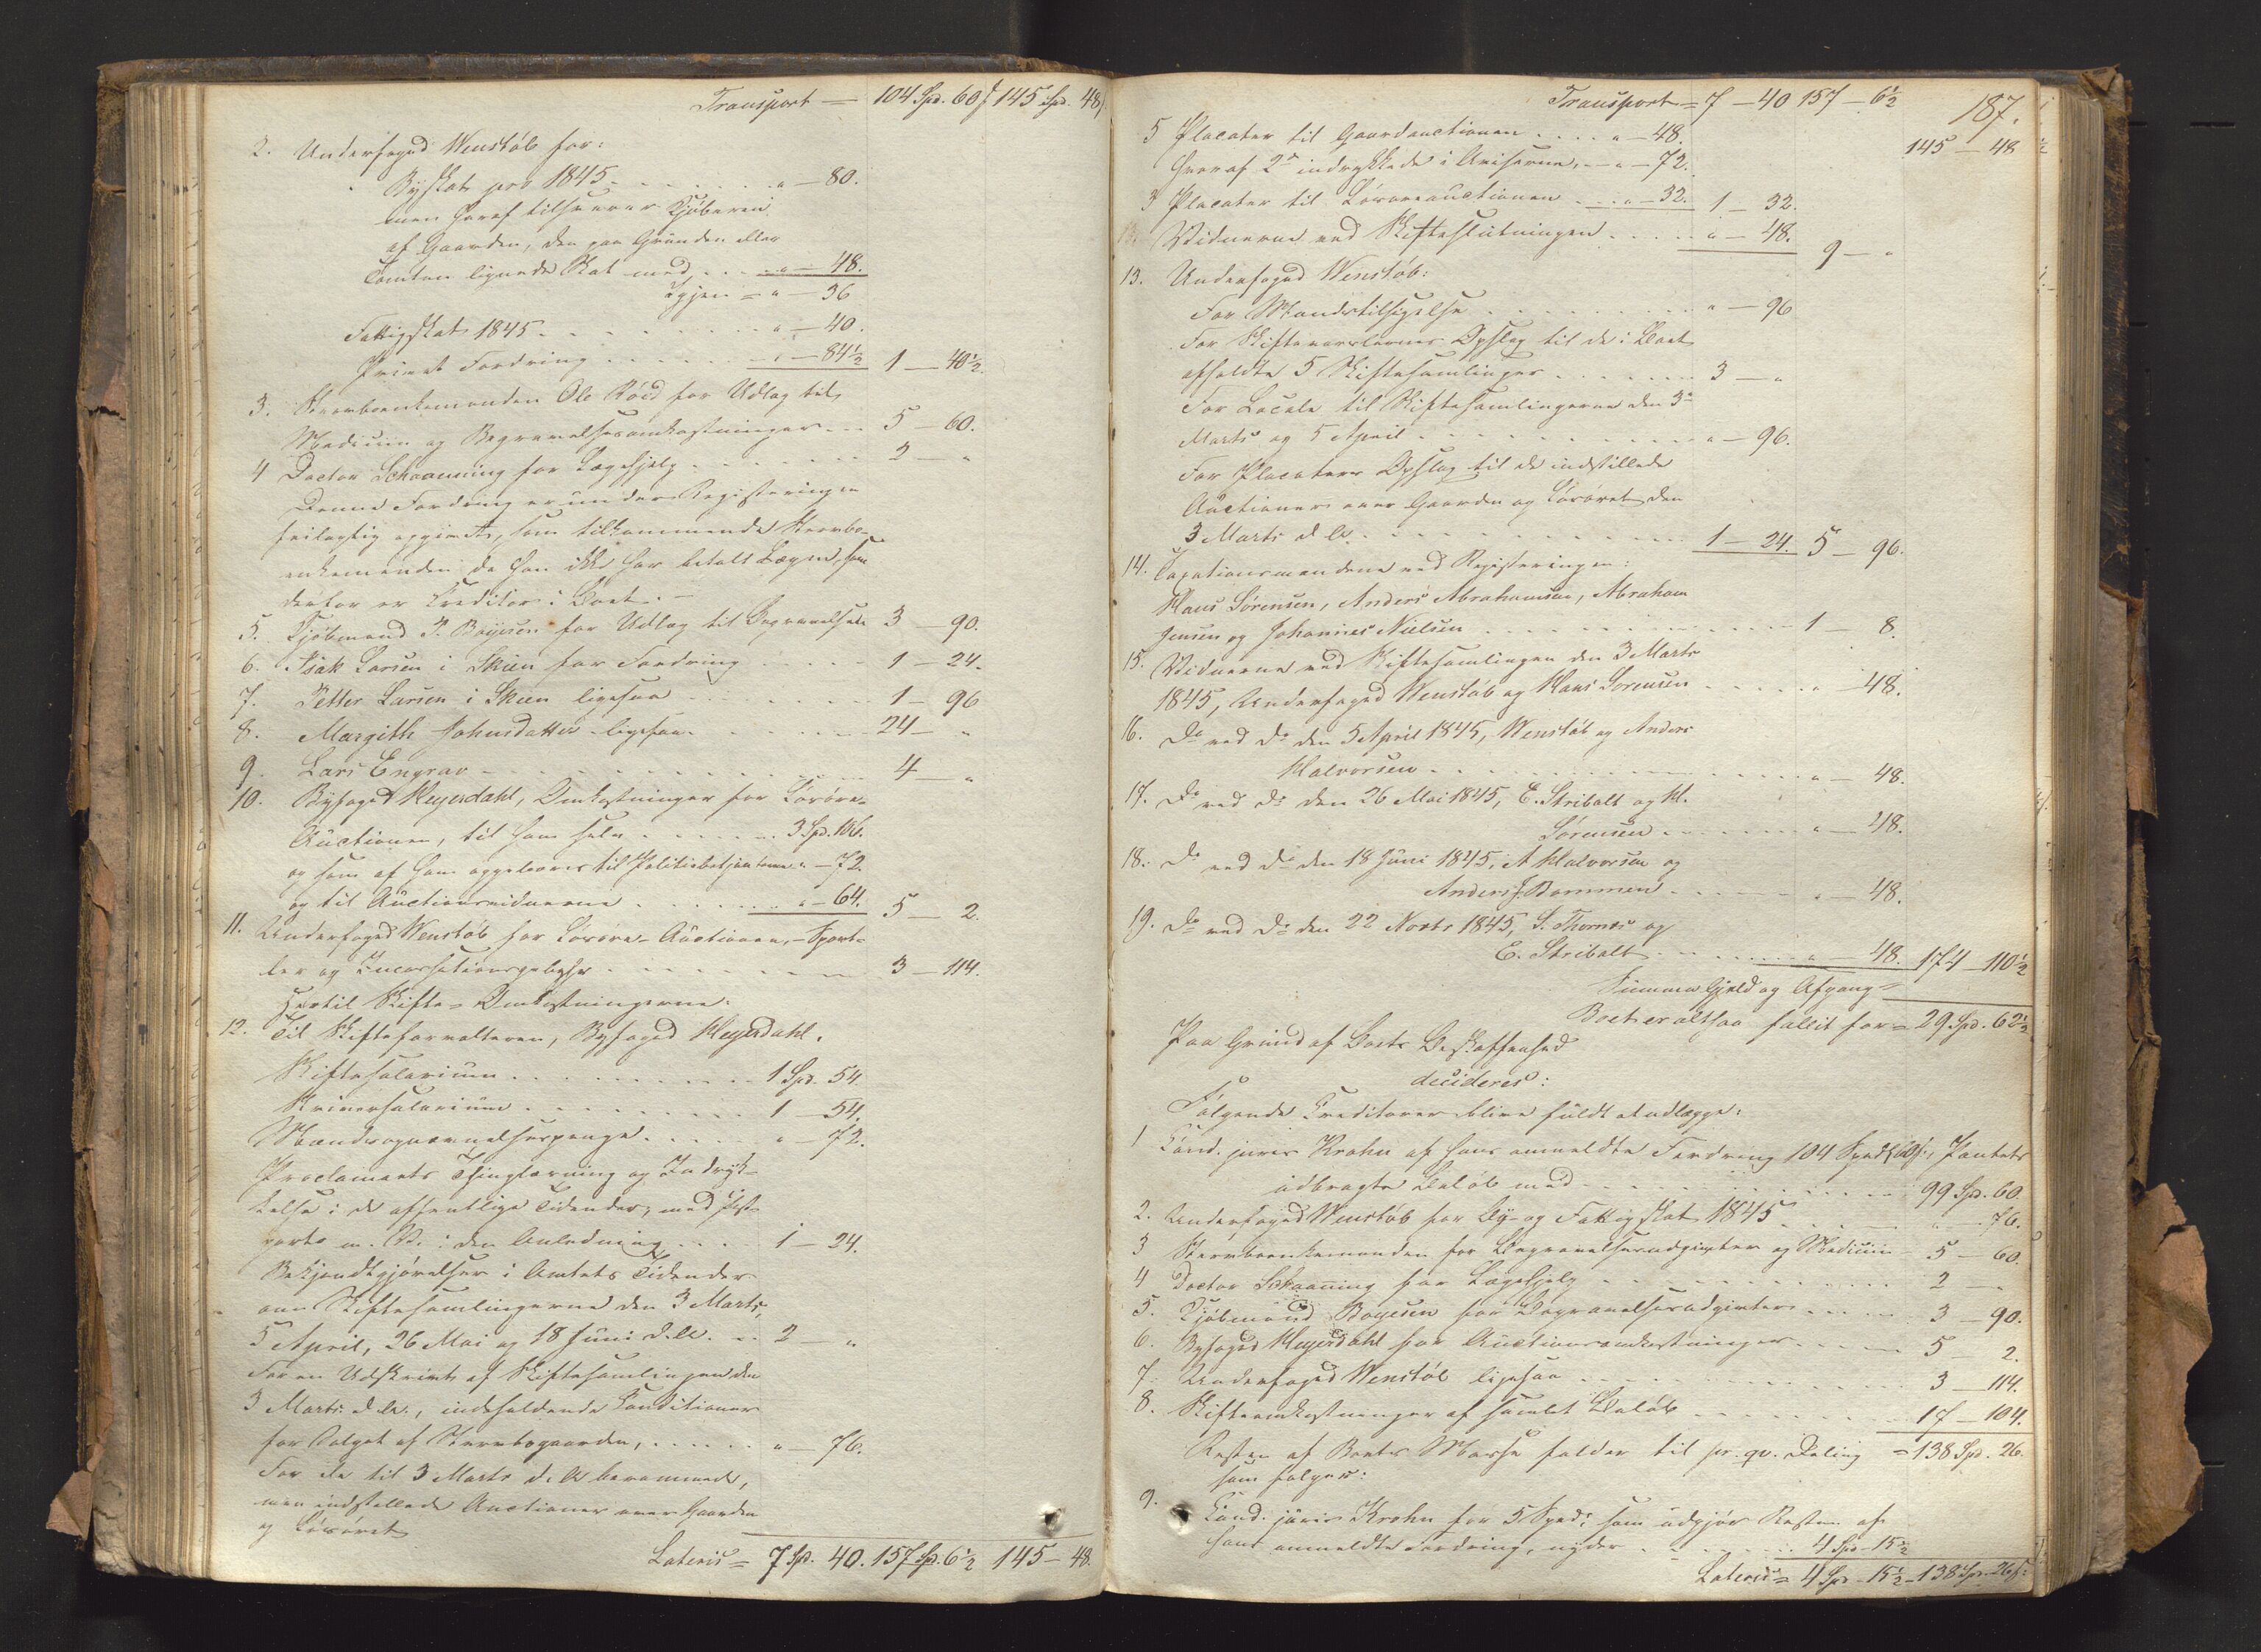 Transport = 104 Spd. 60 ſ 145 Spd. 48 ſ
2. Underfoged Wenstøb for:
Byskat pro 1845 . . . . . " — 80.
men heraf tilsvarer Kjøberen
af Gaarden, den paa Grunden eller
Tomten lignede Skat med . . . " — 48.
Igjen = " — 36
Fattigskat 1845 . . . . . " — 40.
Privat Fordring . . . . . " — 84½ 1 — 40½.
3. Stervboenkemanden Ole Röed for Udlæg til
Medicin og Begravelsesomkostninger . . . 5 — 60.
4 Doctor Schaanning for Lægehjelp . . . . . 2 — "
Denne Fordring er under Registeringen
feilagtig opgivet, som tilkommende Stervbo-
enkemanden da han ikke har betalt Lægen, som
derfor er Creditor i Boet. —
5. Kjøbmand P. Böyesen for Udlæg til Begravelsen 3 — 90.
6. Isak Larsen i Skien for Fordring . . . . . 1 — 24.
7. Petter Larsen i Skien ligesaa . . . . . 1 — 96
8. Margith Johnsdatter ligesaa . . . . . 24 — "
9. Lars Engrav . . . . . 4 — "
10. Byfoged Heyerdahl, Omkostninger for Løsøre-
Auctionen, til ham selv . . . . . 3 Spd. 106.
og som af ham oppebæres til Politiebetjentene " — 72.
og til Auctionsvidnerne . . . . . " — 64. 5 — 2.
11. Underfoged Wenstøb for Løsøre-Auctionen, — Sport-
ler og Incassationsgebyhr . . . . . 3 — 114.
Hertil Skifte-Omkostningerne:
12. Til Skifteforvalteren, Byfoged Heyerdahl.
Skiftesalarium . . . . . 1 Spd. 54.
Skriversalarium . . . . . 1 — 54.
Mandsopnævnelsespenge . . . . . " — 72.
Proclamaets Thinglæsning og Indryk-
kelse i de offentlige Tidender, med Post-
porto m. V. i den Anledning . . . 1 — 24.
Bekjendtgjørelser i Amtets Tidender
om Skiftesamlingerne den 3 Marts,
5 April, 26 Mai og 18 Juni d. A. . . 2 — "
For en Udskrivt af Skiftesamlingen den
3 Marts d. A., indeholdende Conditioner
for Salget af Stervbogaarden, . . . . . " — 76.
For de til 3 Marts d. A. berammede,
men indstillede Auctioner over Gaarden
og Løsøret
Lateris = 7 Sp. 40. 157 Sp. 6½ 145 — 48.
187.
Transport = 7 — 40 157 — 6½
145 — 48
5 Placater til Gaardauctionen . . . . " — 48.
heraf 2de indrykkede i Aviserne, — " — 72.
3 Placater til Løsøreauctionen . . . " — 32. 1 — 32.
Vidnerne ved Skifteslutningen . . . . " — 48. 9 — "
13. Underfoged Wenstøb:
For Mandstilsigelse . . . . . " — 96
For Skiftevarslernes Opslag til de i Boet
afholdte 5 Skiftesamlinger . . . . . 3 — "
For Locale til Skiftesamlingerne den 3die
Marts og 5 April . . . . . " — 96.
For Placaters Opslag til de indstillede
Auctioner over Gaarden og Løsøret den
3 Marts d. A. . . . . . 1 — 24. 5 — 96.
14. Taxationsmændene ved Registeringen:
Hans Sørensen, Anders Abrahamsen, Abraham
Jensen og Johannes Nielsen . . . . . 1 — 8.
15. Vidnerne ved Skiftesamlingen den 3 Marts
1845, Underfoged Wenstøb og Hans Sørensen . . . . . " — 48.
16. Do ved do den 5 April 1845, Wenstøb og Anders
Halvorsen . . . . . " — 48.
17. Do ved do den 26 Mai 1845, E. Stribolt og H.
Sørensen . . . . . " — 48.
18. Do ved do den 18 Juni 1845, A Halvorsen og
Anders J. Bommen . . . . . " — 48.
19. Do ved do den 22 Novbr 1845, S. Thornes og
E. Stribolt . . . . . " — 48. 174 — 110½
Summa Gjeld og Afgang =
Boet er altsaa fallit for = 29 Spd. 62½
Paa Grund af Boets Beskaffenhed
decideres:
Følgende Creditorer blive fuldt at udlægge:
1 Cand. juris Krohn af hans anmeldte Fordring 104 Spd 60 ſ, Pantets
udbragte Beløb med . . . . . 99 Spd. 60.
2. Underfoged Wenstøb for By- og Fattigskat 1845 . . . . . " — 76.
3 Stervboenkemanden for Begravelsesudgivter og Medicin — 5 — 60.
4 Doctor Schaanning for Lægehjelp . . . . . 2 — "
5. Kjøbmand Boyesen for Begravelsesudgivter . . . . . 3 — 90.
6. Byfoged Heyerdahl for Auctionsomkostninger . . . . . 5 — 2.
7. Underfoged Wenstøb ligesaa . . . . . 3 — 114.
8. Skifteomkostninger af samlet Beløb . . . . . 17 — 104.
Resten af Boets Masse falder til pr. qv. Deling = 138 Spd. 26.
som følger:
9. Cand. juris Krohn for 5 Spd. som udgjør Resten af
hans anmeldte Fordring, nyder . . . . . 4 Spd — 15½
Lateris = 4 Spd — 15½ — 138 Spd. 26 ſ.